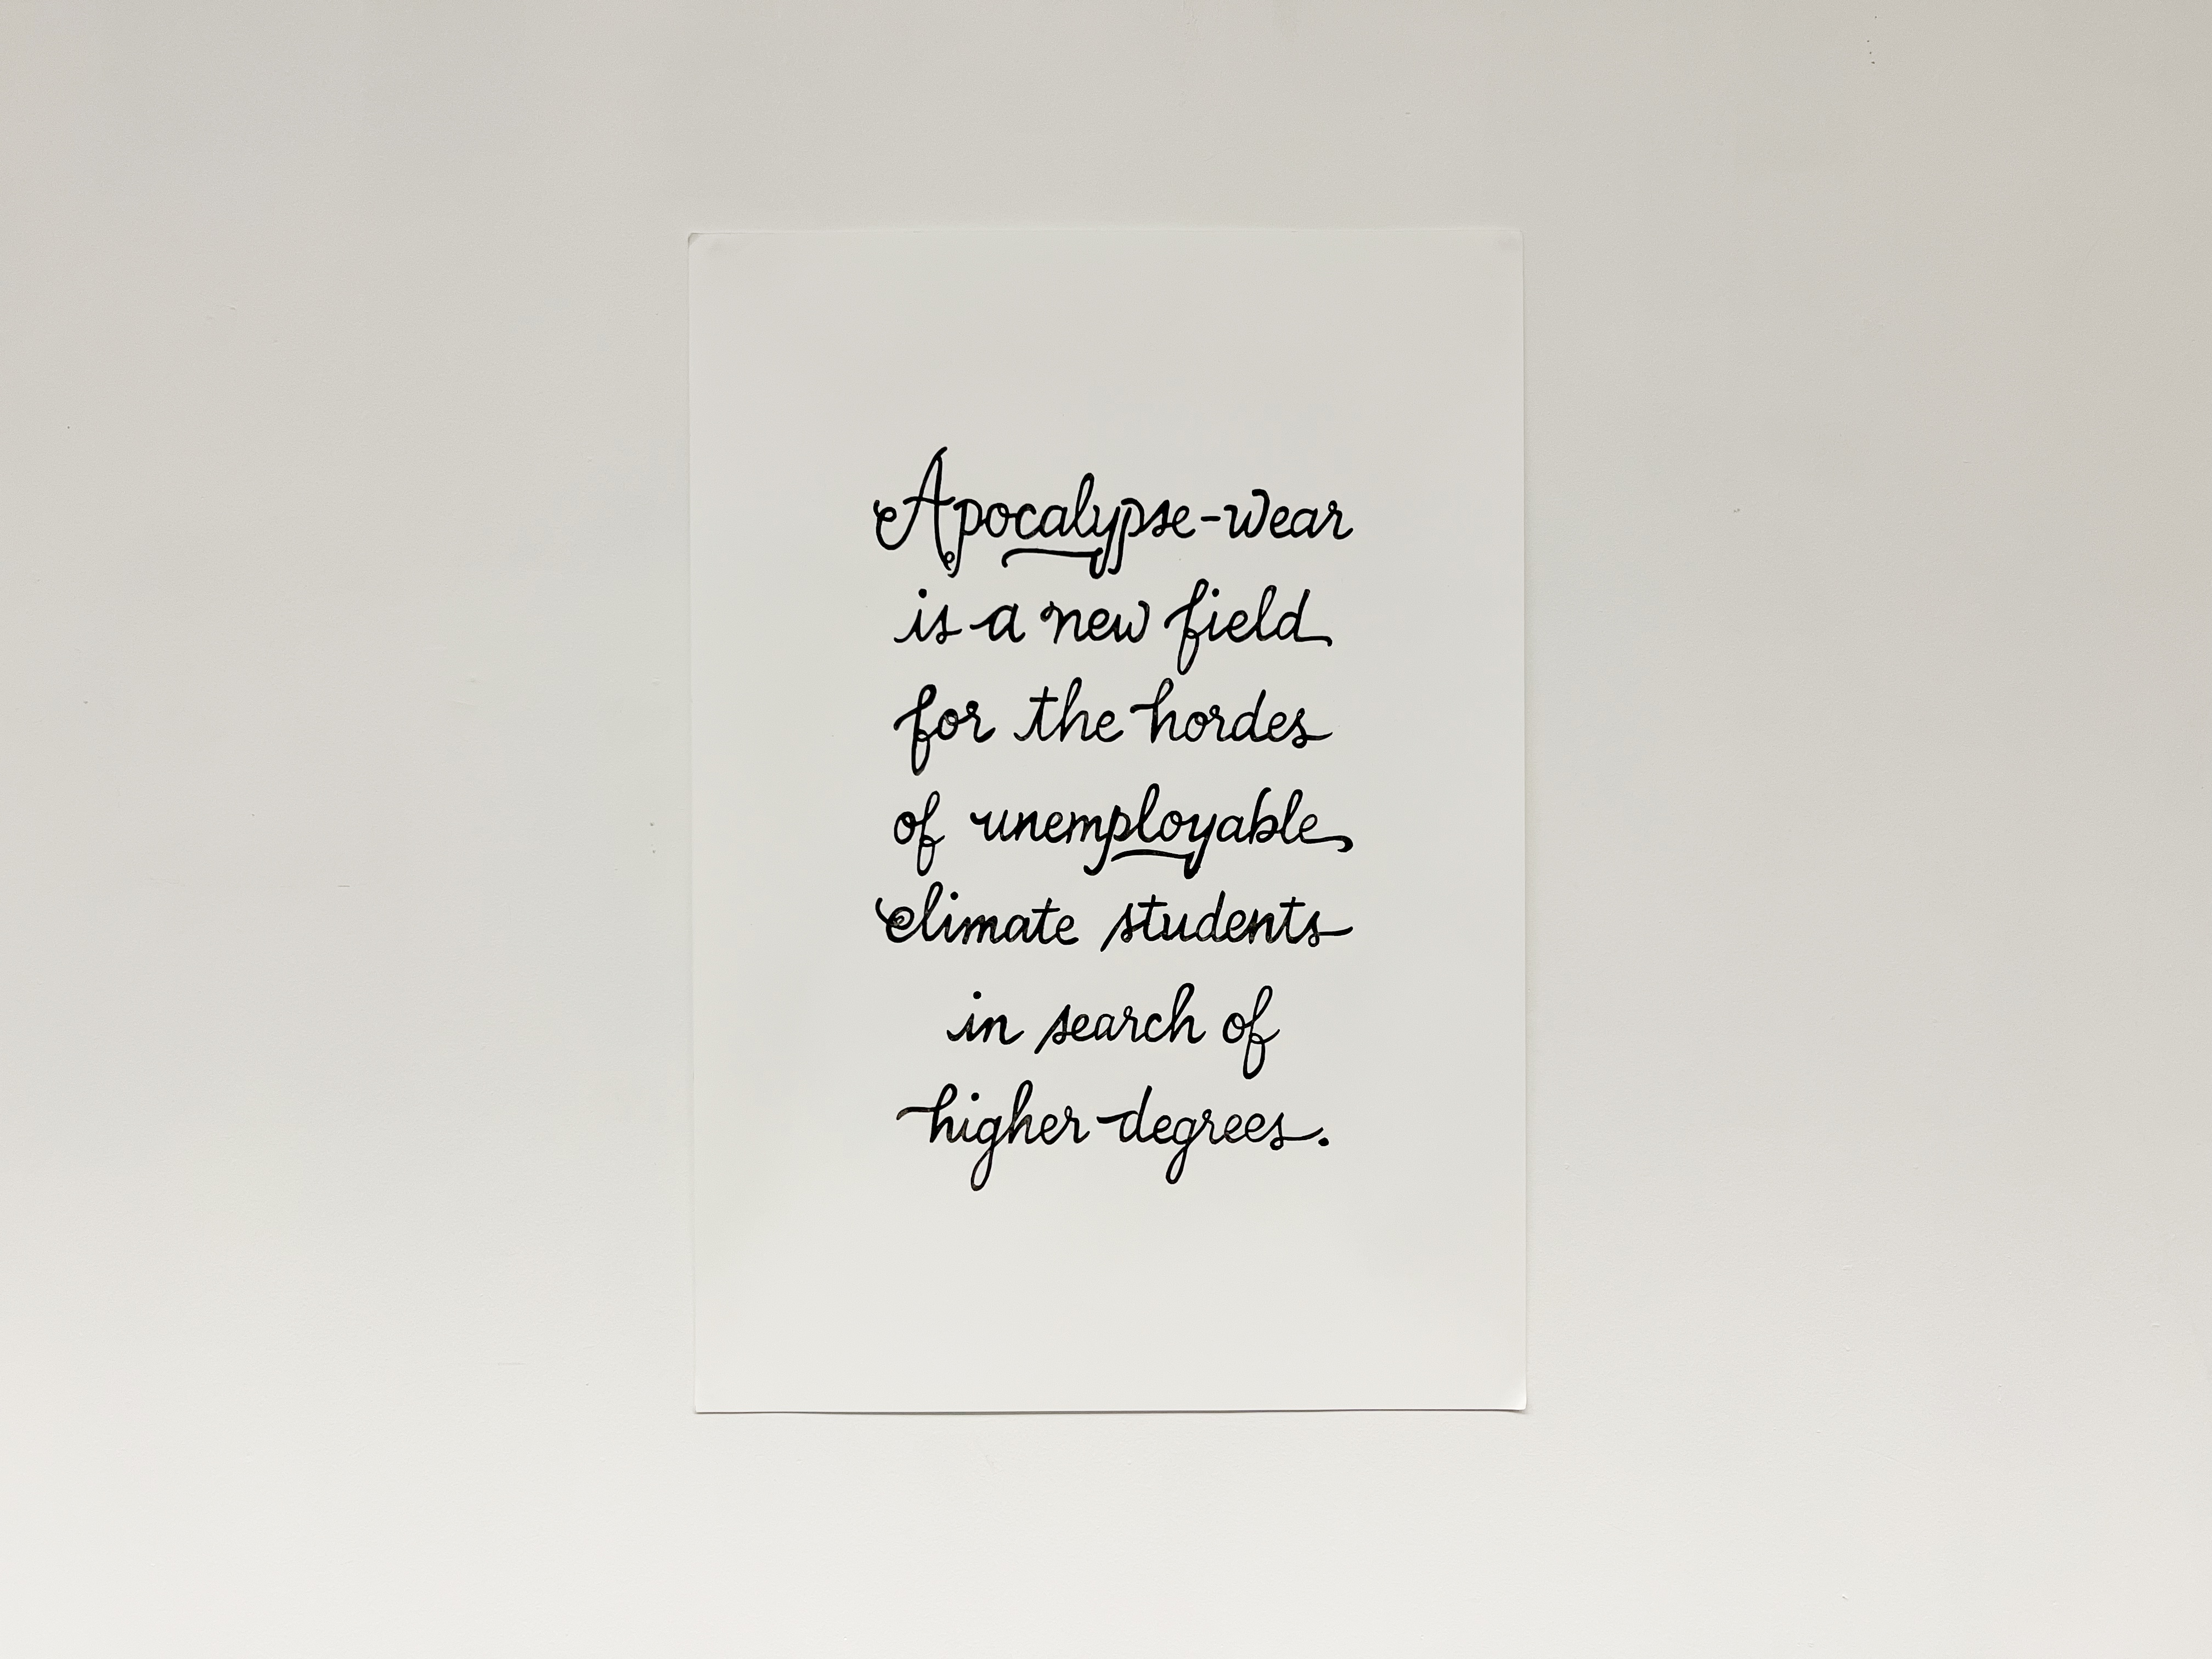 Apocalypse-wear
is a new field
for the hordes
of unemployable
climate students
in search of
higher degrees.